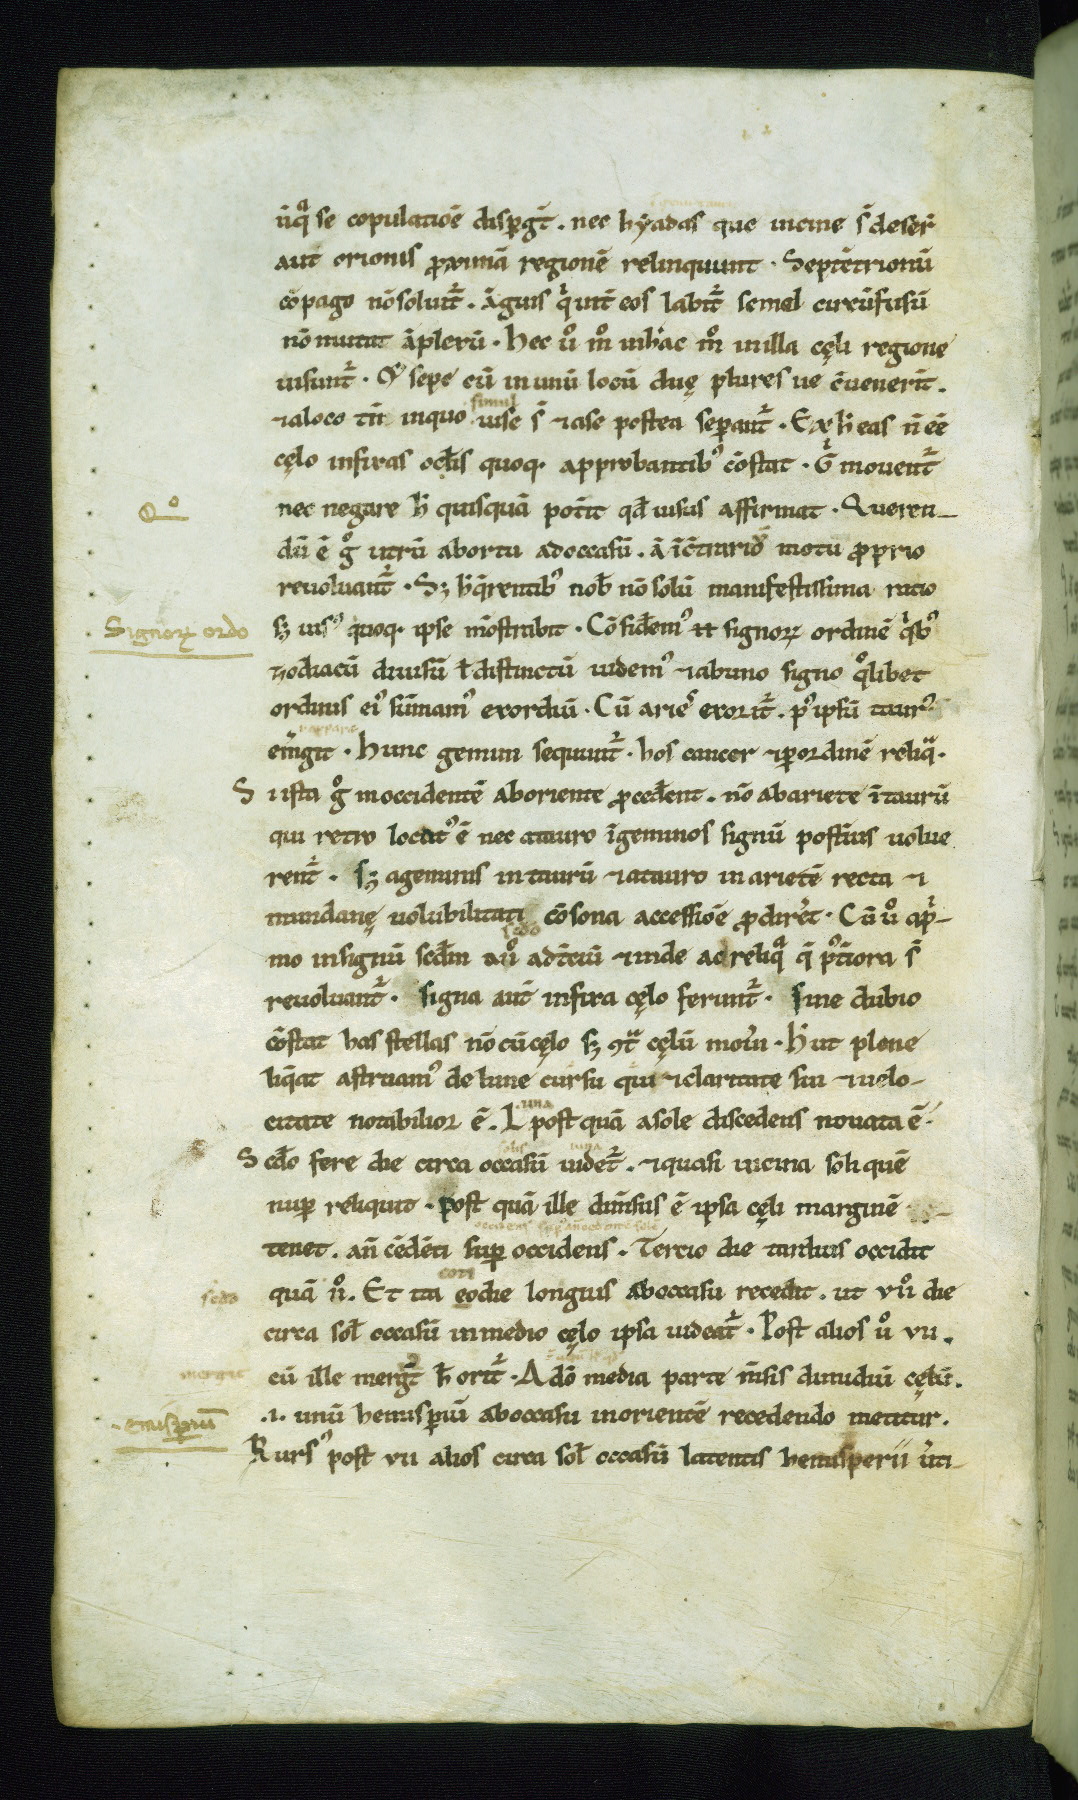 ūq̄ se copulatiōe disp̄git̄ . nec hẏadas que uicine s̄ deser̄
aut orionis ꝓximā regionē relinquunt . Septētrionū
cōpago nō soluit̄ . āguis q̇ int̄ eos labit̄ semel circūfusū
nō mutat āplexū . Hec ů m̊ in hac m̊ in illa cęli regione
uisunt̄ . Q̇ sepe cū in unū locū duę plures ue ꝯuenerīt .
simul
⁊ a loco tn̄ in quo uise s̄ ⁊ a se postea sepant̄ . Ex h̄ eas n̄ ēē
cęlo infixas ocl̄is quoq; approbantib᷒ cōstat . G̊ mouent̄
nec negare h̄ quisquā poterit qđ uisus affirmat . Queren-
Qº
dū ē g̊ utrū ab ortu ad occasū . ā ī ꝯtrariū motu ꝓprio
reuoluant̄ . Sꝫ h̄ q̄rentib᷒ nob̄ nō solū manifestissima ratio
Signoꝝ ordo
sꝫ uis᷒ quoq; ipse mōstrabit . Cōsiđem᷒ signoꝝ ordinē q̇b᷒
zodiacū diuisū ł distinctū uidem᷒ ⁊ ab uno signo q̊libet
ordinis ei᷒ sūmam᷒ exordiū . Cū aries exorit̄ . p᷒ ipsū taur᷒
em̄git . Hunc gemini sequunt̄ . hos cancer ⁊ ꝑ ordinē reliq̄ .
Si ista g̊ in occidentē ab oriente ꝓceđent . nō ab ariete ī taurū
qui retro locat᷒ ē nec a tauro ī geminos signū posteri᷒ uolue
rent̄ . sꝫ a geminis in taurū ⁊ a tauro in arietē recta ⁊
mundanę uolubilitati cōsona accessiōe ꝓdiret . Cū ů a p̄-
scđo
mo in signū scđm a ů ad t̄ciū ⁊ inde ad reliq̄ q̄ p᷒t̄iora s̄
reuoluant̄ . signa aut̄ infixa cęlo ferunt̄ . sine dubio
cōstat has stellas nō cū cęlo sꝫ ꝯt̄ cęlū moūi . H̄ ut plene
liq̄at astruam᷒ de lune cursu qui ⁊ claritate sui ⁊ uelo-
citate notabilior ē . Luna postquā a sole discedens nouata ē .
solis luna
Scđo fere die circa occasū uidet̄ . ⁊ quasi uicina soli quē
nuꝑ reliquit . post quā ille dim̄sus ē ipsa cęli marginē
tenet . an̄ cēdēti suꝑ occidens . Tercio die tardius occidit
quā ii̊ . Et ita cotidie longius ab occasu recedit . ut vii̊ die
scđo
circa sol̄ occasū in medio cęlo ipsa uideat̄ . Post alios ů vii .
mergit
cū ille mergit̄ h̄ orit̄ . Adō media parte m̄sis dimidiū cęlū .
emisꝑiū
.i. unū hemisꝑiū ab occasu in orientē recedendo metitur .
Rurs᷒ post vii alios circa sol̄ occasū latentis hemisperii ůti-